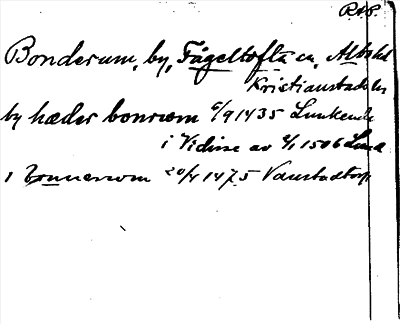 RAP.
Bonderum, by, Fågeltofta sn, Albo hd
Kristianstads län
by hæder bonrwm 6/9 1435 Lunkende
i Vidisse av 2/1 1506 Lund
i Bonnerwom 20/4 1475 Vanstadtorp